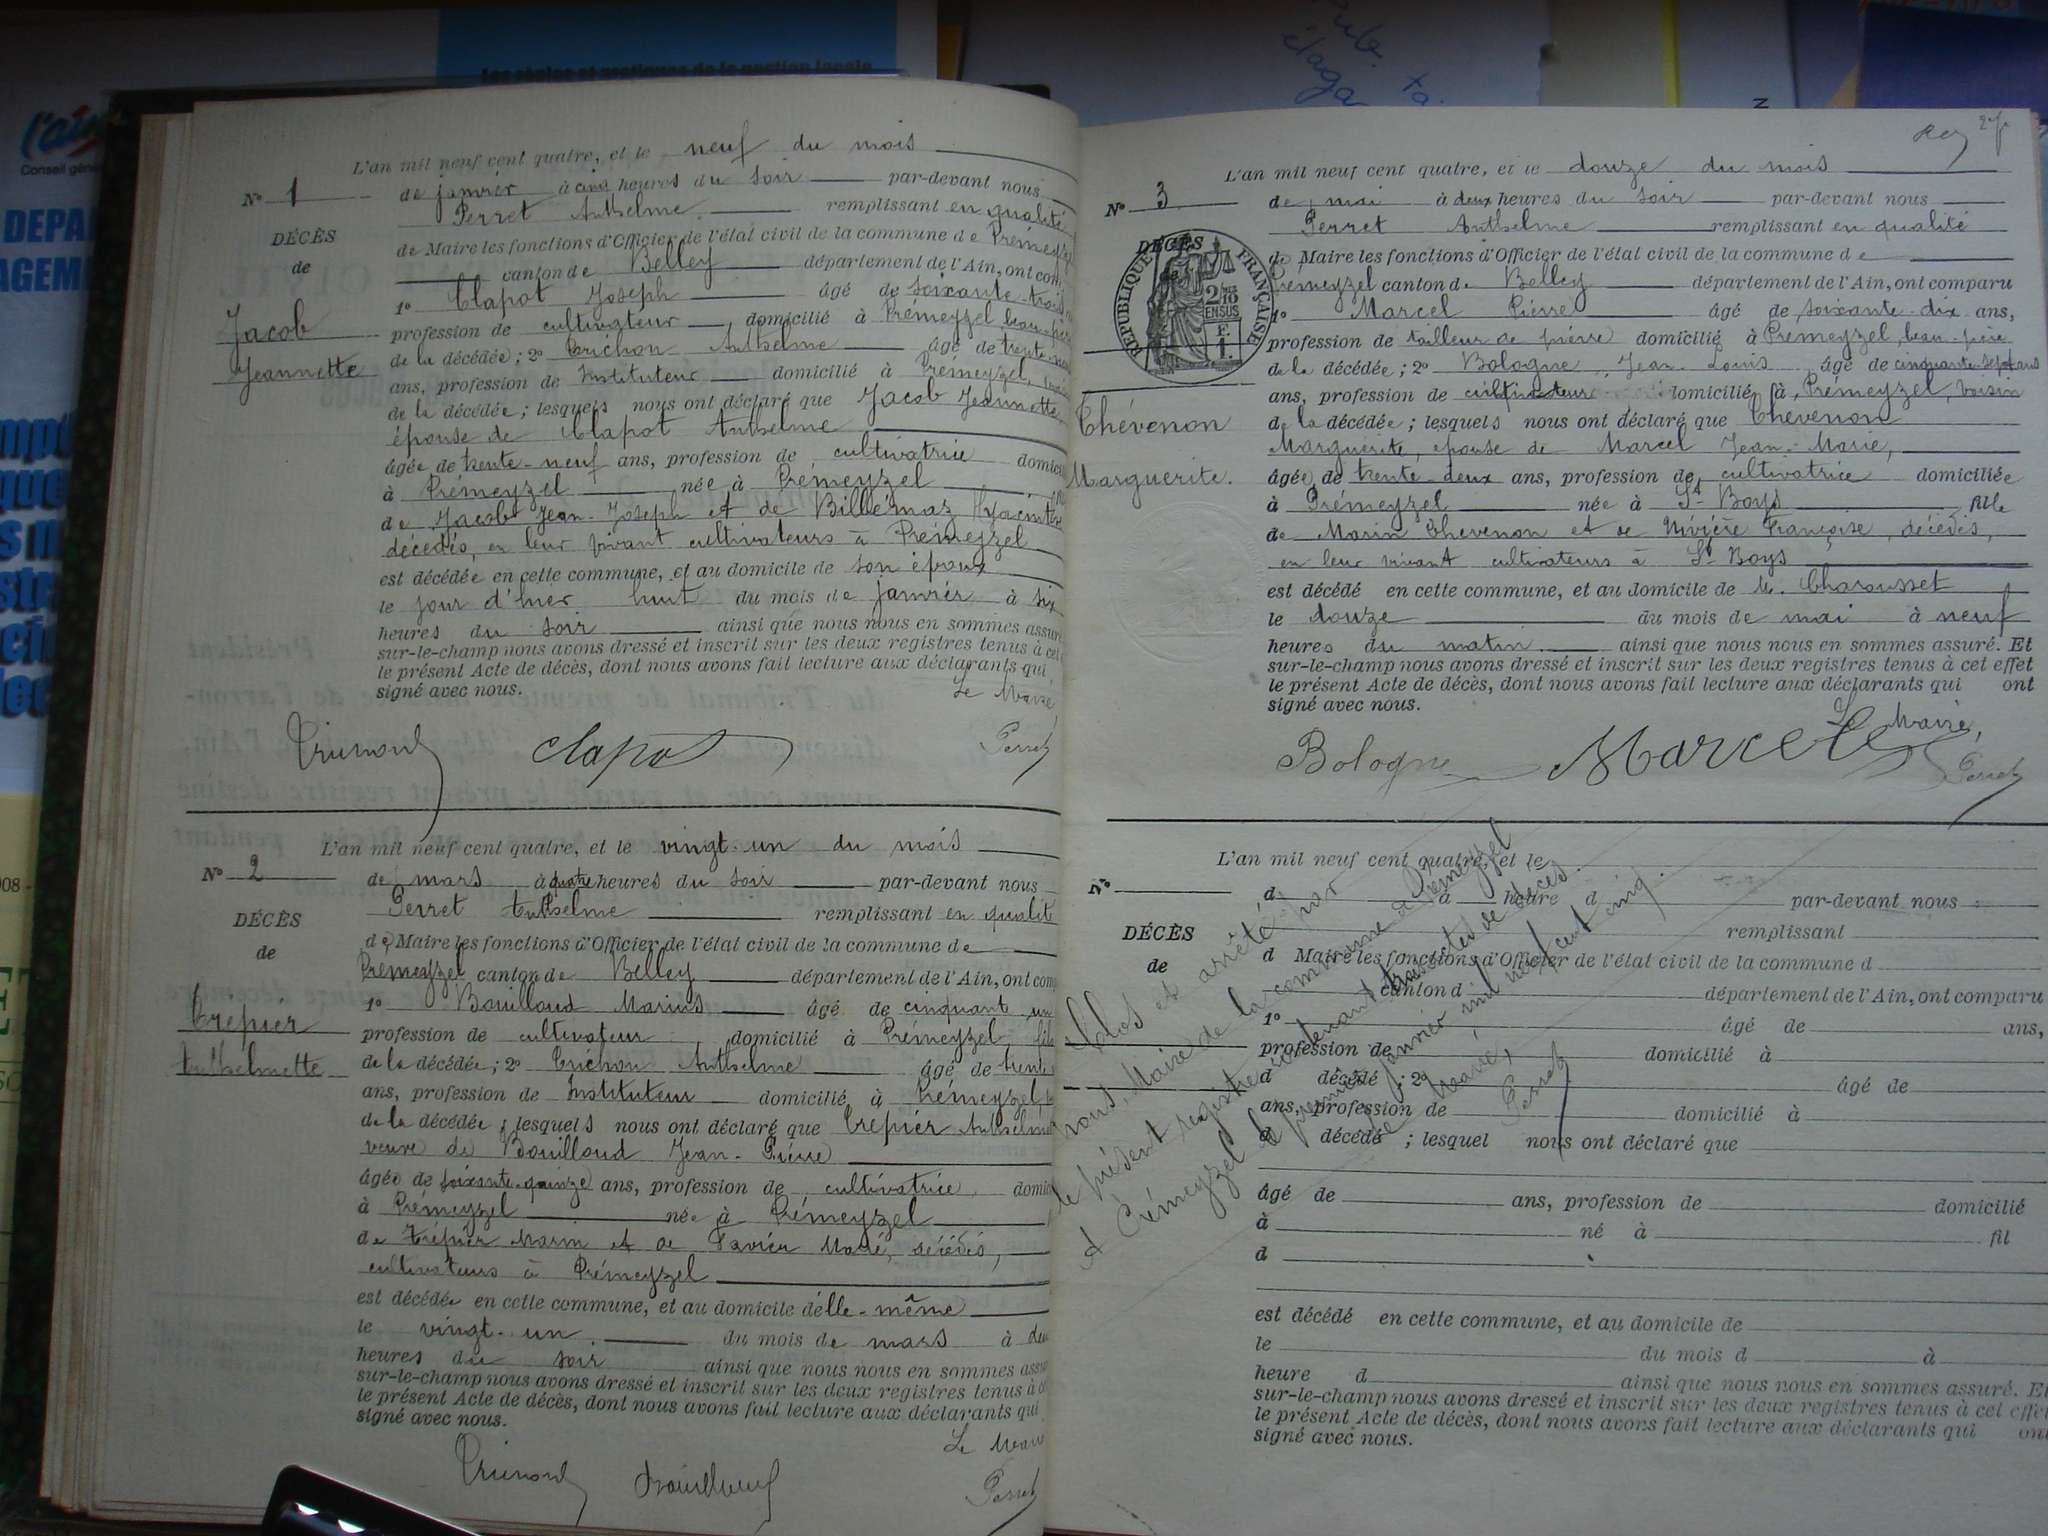 L'an mil neuf cent quatre, et le neuf du mois
N° 1
de janvier à cinq heures du soir par-devant nous
Perret Anthelme remplissant en qualité
DÉCÈS
de
de Maire les fonctions d'Officier de l'état civil de la commune de Prémeyzel
canton de Belley département de l'Ain, ont com
1° Clapot Joseph âgé de soixante-trois
Jacob
Jeannette
profession de cultivateur domicilié à Prémeyzel, beau-père
de la décédée; 2° Anthelme âgé de trente
ans, profession de Instituteur domicilié à Prémeyzel,
de la décédée; lesquels nous ont déclaré que Jacob Jeannette
épouse de Clapot Anthelme
âgée de trente-neuf ans, profession de cultivatrice domici
à Prémeyzel née à Prémeyzel
de Jacob Jean-Joseph et de Billémaz Hyacinthe
décédés, en leur vivant cultivateurs à Prémeyzel
est décédée en cette commune, et au domicile de son époux
le jour d'hier huit du mois de janvier à six
heures du soir ainsi que nous nous en sommes assuré
sur-le-champ nous avons dressé et inscrit sur les deux registres tenus à cet
le présent Acte de décès, dont nous avons fait lecture aux déclarants qui
signé avec nous.
Le Maire,
Clapot
Perret
L'an mil neuf cent quatre, et le vingt-un du mois
N° 2
de mars à quatre heures du soir par-devant nous
Perret Anthelme remplissant en qualité
DÉCÈS
de
de Maire les fonctions d'Officier de l'état civil de la commune de
Prémeyzel canton de Belley département de l'Ain, ont comp
1° Bouilloud Marius âgé de cinquant un
Trépier
Anthelmette
profession de cultivateur domicilié à Prémeyzel, fils
de la décédée; 2° Anthelme âgé de trente
ans, profession de Instituteur domicilié à Prémeyzel,
de la décédée, lesquels nous ont déclaré que Trépier Anthelme
veuve de Bouilloud Jean-Pierre
âgée de soixante-quinze ans, profession de cultivatrice domici
à Prémeyzel née à Prémeyzel
de Trépier Marin et de Pavier Marie, décédés,
cultivateurs à Prémeyzel
est décédée en cette commune, et au domicile d'elle-même
le vingt-un du mois de mars à deu
heures du soir ainsi que nous nous en sommes assu
sur-le-champ nous avons dressé et inscrit sur les deux registres tenus à c
le présent Acte de décès, dont nous avons fait lecture aux déclarants qui
signé avec nous.
Le Maire
Perret
L'an mil neuf cent quatre, et le douze du mois
N° 3
de mai à deux heures du soir par-devant nous
Perret Anthelme remplissant en qualité
DÉCÈS
RÉPUBLIQUE FRANÇAISE
de Maire les fonctions d'Officier de l'état civil de la commune de
Prémeyzel canton de Belley département de l'Ain, ont comparu
1° Marcel Pierre âgé de soixante-dix ans,
profession de tailleur de pierre domicilié à Prémeyzel, beau-père
de la décédée; 2° Bologne Jean-Louis âgé de cinquante-sept ans
ans, profession de cultivateur domicilié à Prémeyzel, voisin
Thévenon
Marguerite.
de la décédée; lesquels nous ont déclaré que Thévenon
Marguerite, épouse de Marcel Jean-Marie,
âgée de trente-deux ans, profession de cultivatrice domiciliée
à Prémeyzel née à St-Boys fille
de Marin Thevenon et de Nivière Françoise, décédés,
en leur vivant cultivateurs à St Boys
est décédé en cette commune, et au domicile de M. Charousset
le douze du mois de mai à neuf
heures du matin ainsi que nous nous en sommes assuré. Et
sur-le-champ nous avons dressé et inscrit sur les deux registres tenus à cet effet
le présent Acte de décès, dont nous avons fait lecture aux déclarants qui ont
signé avec nous.
Le Maire,
Bologne Marcel
Perret
L'an mil neuf cent quatre, et le
N°
d à heure d par-devant nous
remplissant
DÉCÈS
de
d Maire les fonctions d'Officier de l'état civil de la commune d
canton d département de l'Ain, ont comparu
1° âgé de ans,
profession de domicilié à
d décédé; 2° âgé de
ans, profession de domicilié à
d décédé; lesquel nous ont déclaré que
âgé de ans, profession de domicilié
à né à fil
d
est décédé en cette commune, et au domicile de
le du mois d à
heure d ainsi que nous nous en sommes assuré. Et
sur-le-champ nous avons dressé et inscrit sur les deux registres tenus à cet effet
le présent Acte de décès, dont nous avons fait lecture aux déclarants qui ont
signé avec nous.
Clos et arrêté par
nous, Maire de la commune de Prémeyzel
le présent registre contenant trois actes de décès.
A Prémeyzel le premier janvier mil neuf cent cinq.
Le Maire,
Perret